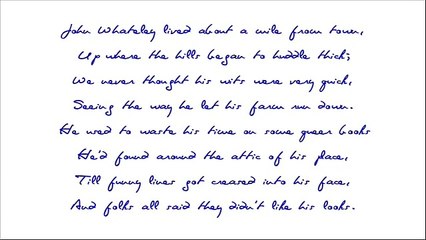 John Whateley lived about a mile from town,
Up where the hills began to huddle thick;
We never thought his wits were very quick,
Seeing the way he let his farm run down.
He used to waste his time on some queer books
He'd found around the attic of his place,
Till funny lines got creased into his face,
And folks all said they didn't like his looks.